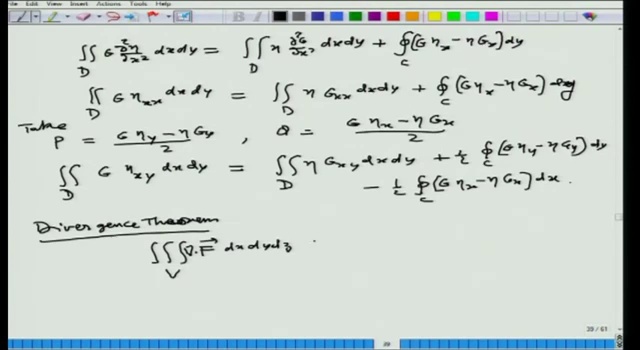 ∬_D G ∂²η/∂x² dxdy = ∬_D η ∂²G/∂x² dxdy + ∮_C (G η_x − η G_x) dy
∬_D G η_xx dxdy = ∬_D η G_xx dxdy + ∮_C (G η_x − η G_x) dy
Take P = (G η_y − η G_y)/2 , Q = (G η_x − η G_x)/2
∬_D G η_xy dxdy = ∬_D η G_xy dxdy + ½ ∮_C (G η_y − η G_y) dy
− ½ ∮_C (G η_x − η G_x) dx.
Divergence Theorem
∭_V ∇.F⃗ dxdydz
39 / 61
39